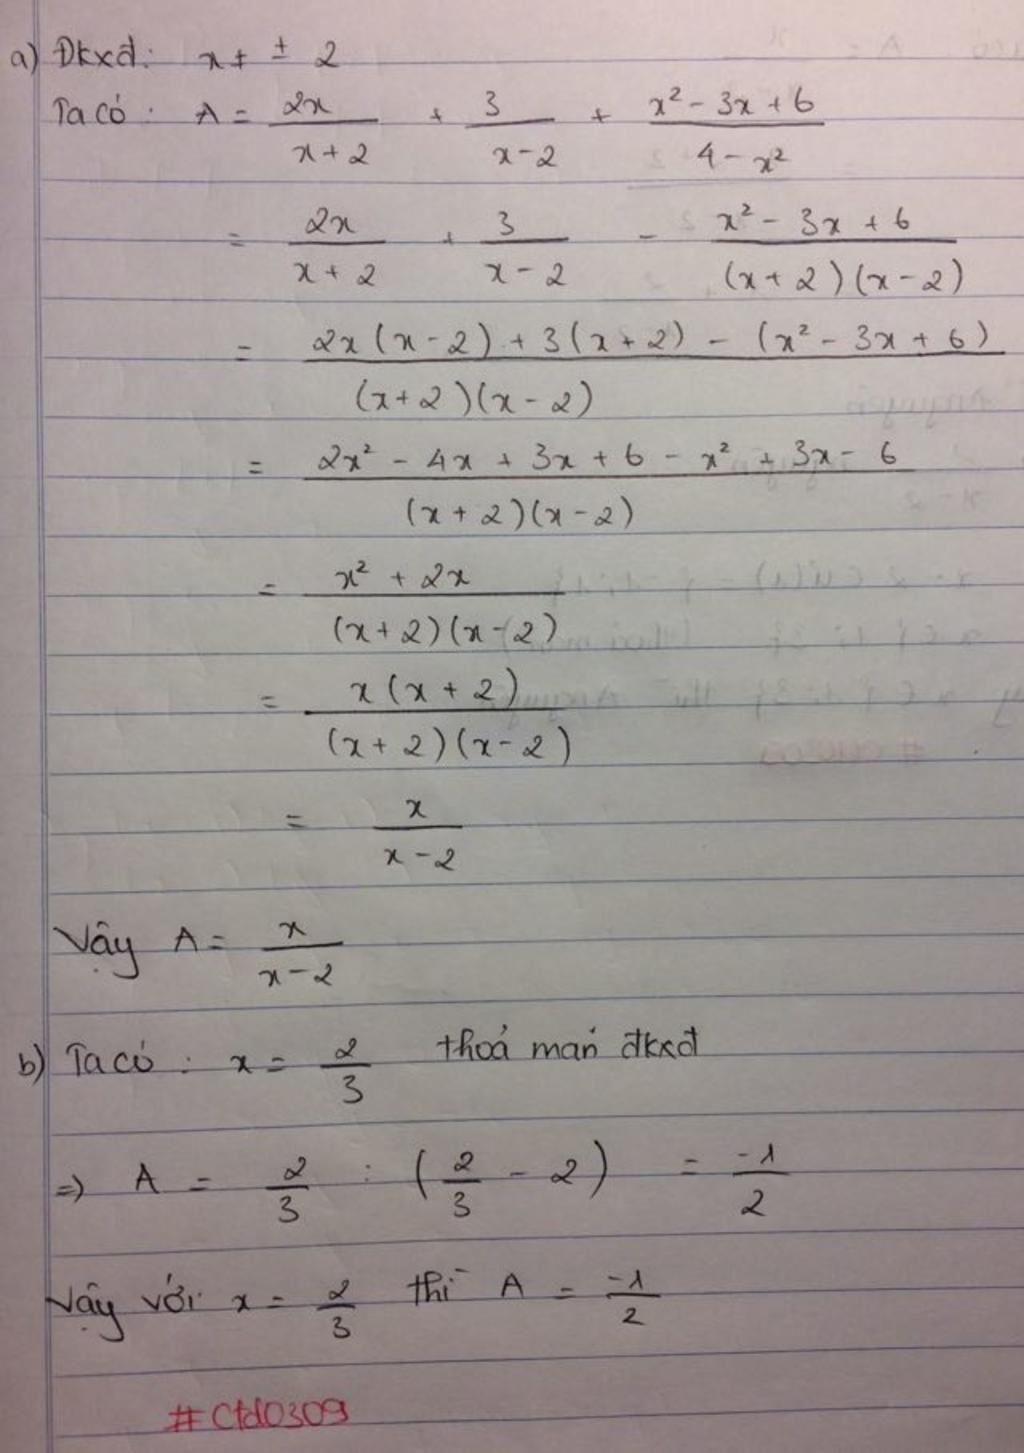 a) Đkxđ: x ≠ ± 2
Ta có: A = 2x/(x+2) + 3/(x-2) + (x² - 3x + 6)/(4 - x²)
= 2x/(x+2) + 3/(x-2) - (x² - 3x + 6)/((x+2)(x-2))
= (2x(x-2) + 3(x+2) - (x² - 3x + 6))/((x+2)(x-2))
= (2x² - 4x + 3x + 6 - x² + 3x - 6)/((x+2)(x-2))
= (x² + 2x)/((x+2)(x-2))
= (x(x+2))/((x+2)(x-2))
= x/(x-2)
Vậy A = x/(x-2)
b) Ta có: x = 2/3 thoả mãn đkxđ
=> A = 2/3 : (2/3 - 2) = -1/2
Vậy với x = 2/3 thì A = -1/2
#Ctd0309